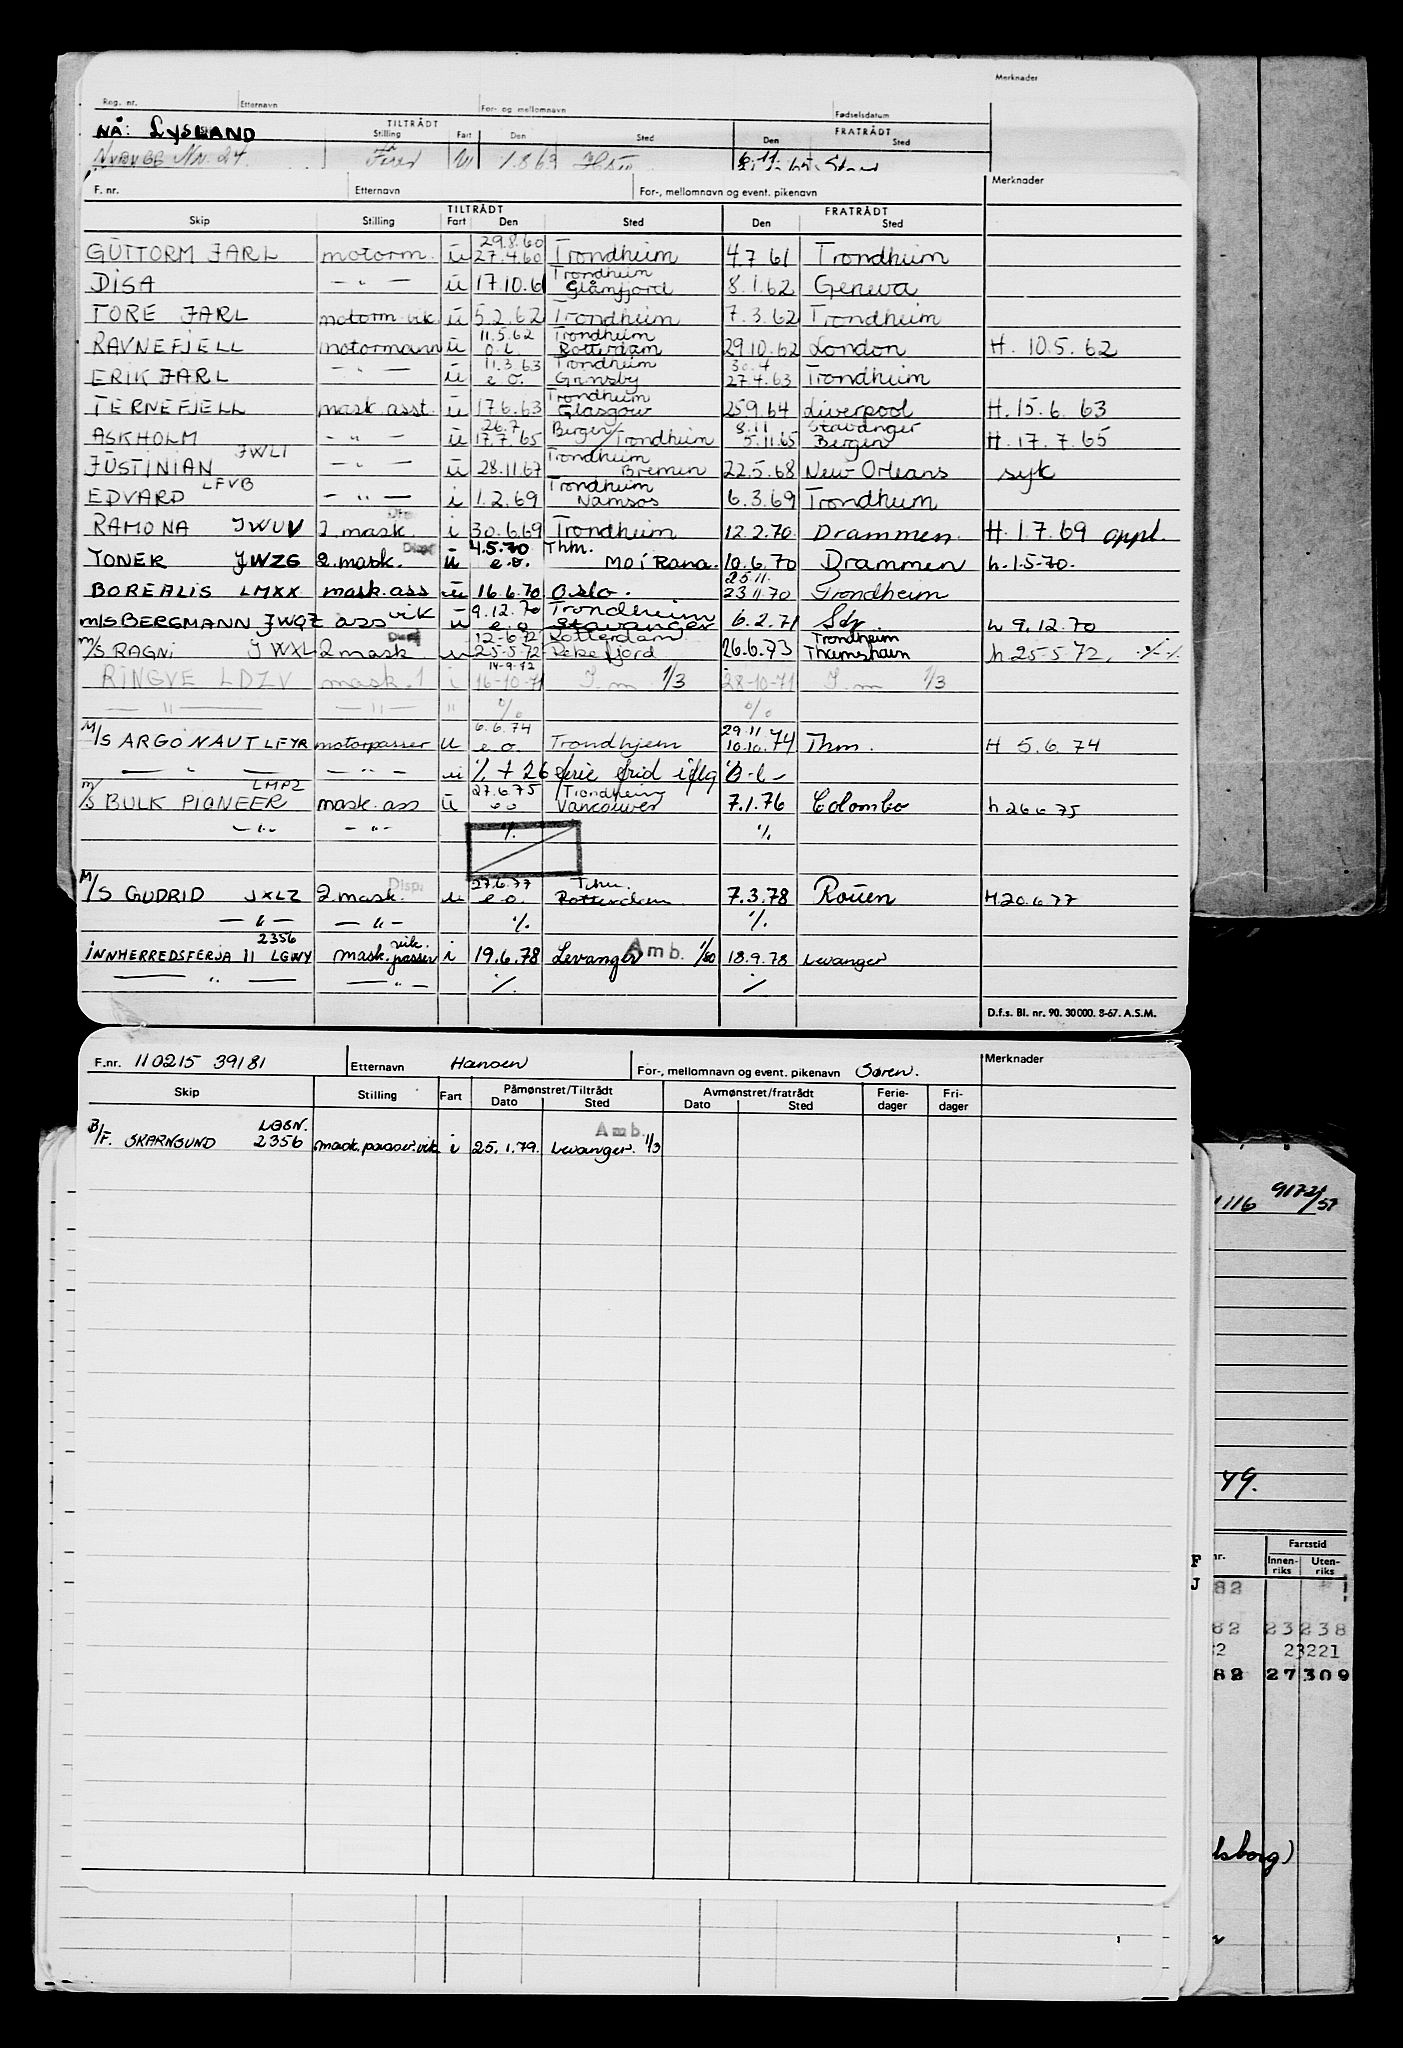 Merknader
Reg. nr. Etternavn For- og mellomnavn Fødselsdatum
TILTRÅDT FRATRÅDT
NÅ: LYSLAND Stilling Fart Den Sted Den Sted
Nybygg Nr. 24. U 1.8.63 6.11
F. nr. Etternavn For-, mellomnavn og event. pikenavn Merknader
TILTRÅDT FRATRÅDT
Skip Stilling Fart Den Sted Den Sted
29.8.60
GUTTORM JARL motorm. u 27.4.60 Trondheim 4.7.61 Trondheim
Trondheim
DISA — " — u 17.10.61 Glåmfjord 8.1.62 Geneva
TORE JARL motorm. vik. u 5.2.62 Trondheim 7.3.62 Trondheim
11.5.62 Trondheim
RAVNEFJELL motormann u Rotterdam 29.10.62 London H. 10.5.62
11.3.63 Trondheim 30.4
ERIK JARL — " — u e o. Grimsby 27.4.63 Trondheim
Trondheim
TERNEFJELL mask. asst. u 17.6.63 Glasgow 25.9.64 Liverpool H. 15.6.63
26.7 Bergen 8.11 Stavanger
ASKHOLM — " — u 17.7.65 /Trondheim 5.11.65 Bergen H. 17.7.65
JWLI Trondheim
JUSTINIAN — " — u 28.11.67 Bremen 22.5.68 New-Orleans syk
LFVB Trondheim
EDVARD — " — i 1.2.69 Namsos 6.3.69 Trondheim
RAMONA JWUV 2. mask. i 30.6.69 Trondheim 12.2.70 Drammen. H. 1.7.69 oppl.
Disp 4.5.70 Thm.
TONEK JWZG 2. mask. u e.o. MO i Rana. 10.6.70 Drammen h. 1-5-70.
25.11.
BOREALIS LMXX mask. ass u 16.6.70 Oslo. 23.11.70 Trondheim
vik 9.12.70 Trondheim
m/s BERGMANN JWQZ ass u e.o Stavanger 6.2.71 h 9.12.70
Disp 12-6-72 Rotterdam Trondheim
m/s RAGNI JWXL 2 mask u 25-5-72 Rekefjord 26.6.73 Thamshavn h 25-5-72.
14-9-72
RINGVE LDZV mask. 1 i 16-10-71 I m 1/3 28-10-71 I m 1/3
— " — — " — " % %
6.6.74 29.11
M/S ARGONAUT LFYR motorpasser u e.o. Trondhjem 10.10.74 Thm. H 5.6.74
— " — — " — u % + 26 ferie frid iflg
LMPZ 27.6.75 Trondheim
m/s BULK PIONEER mask. ass u e o Vancouver 7.1.76 Colombo h 26 6 75
— " — — " — % %
Disp. 27.6.77 Thm.
M/S GUDRID JXLZ 2. mask. u e.o. Rotterdam 7.3.78 Rouen H 20.6.77
— " — — " — % %
2356 vik.
INNHERREDSFERJA II LGWY mask. passer i 19.6.78 Levanger Amb. 1/80 18.9.78 Levanger
— " — — " — % %
D.f.s. Bl. nr. 90. 30000. 8-67. A.S.M.
F.nr. 110215 39181 Etternavn Hansen For-, mellomnavn og event. pikenavn Søren. Merknader
Skip Stilling Fart Påmønstret/Tiltrådt Avmønstret/fratrådt Ferie- Fri-
Dato Sted Dato Sted dager dager
Amb.
B/F. SKARNSUND 2356 mask.passer.vik i 25.1.79. Levanger. 1/3
1116 91721/57
49.
nr. Fartstid
Innen- Uten-
riks riks
F
J 82
82 23238
2 23221
82 27309
lsborg)